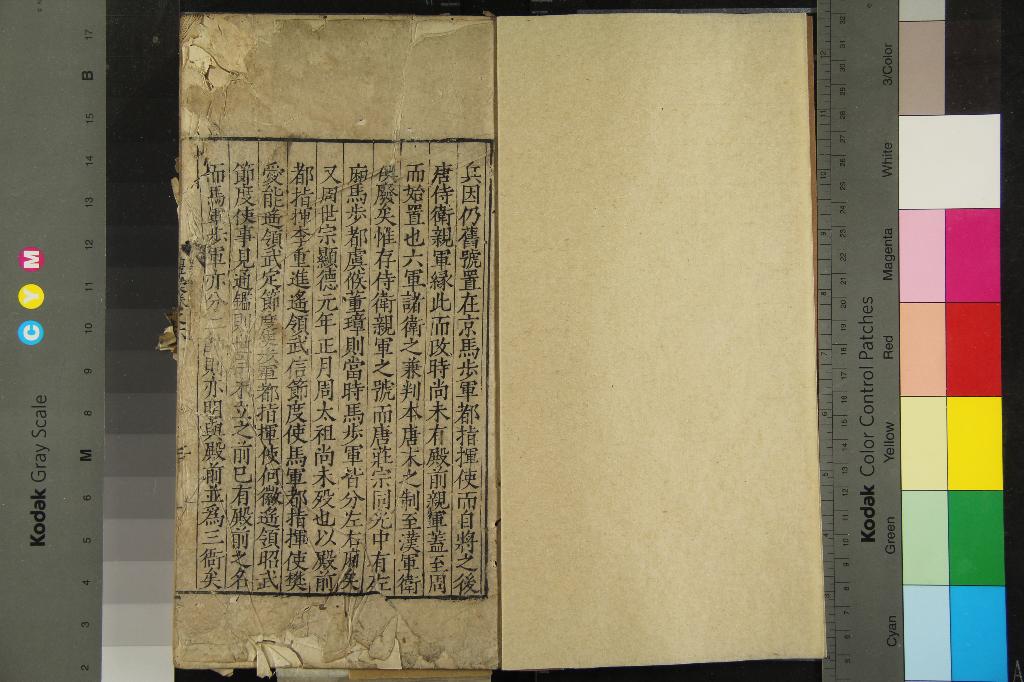 兵因仍舊號置在京馬步軍都指揮使而自將之後
唐侍衛親軍緣此而政時尚未有殿前親軍蓋至周
而始置也六軍諸衛之兼判本唐末之制至漢軍衛
俱廢矣惟存侍衛親軍之號而唐莊宗同光中有左
廂馬步都虞候董璋則當時馬步軍皆分左右廂矣
又周世宗顯德元年正月周太祖尚未歿也以殿前
都指揮李重進遙領武信節度使馬軍都指揮使樊
愛能遙領武定節度使步軍都指揮使何徽遙領昭武
節度使事見通鑑則世宗未立之前已有殿前之名
而馬軍步軍亦分則亦明與殿前並為三衙矣
Kodak Gray Scale
C Y M
2 3 4 5 6 M 8 9 10 11 12 13 14 15 B 17
Kodak Color Control Patches
Cyan
Green
Yellow
Red
Magenta
White
3/Color